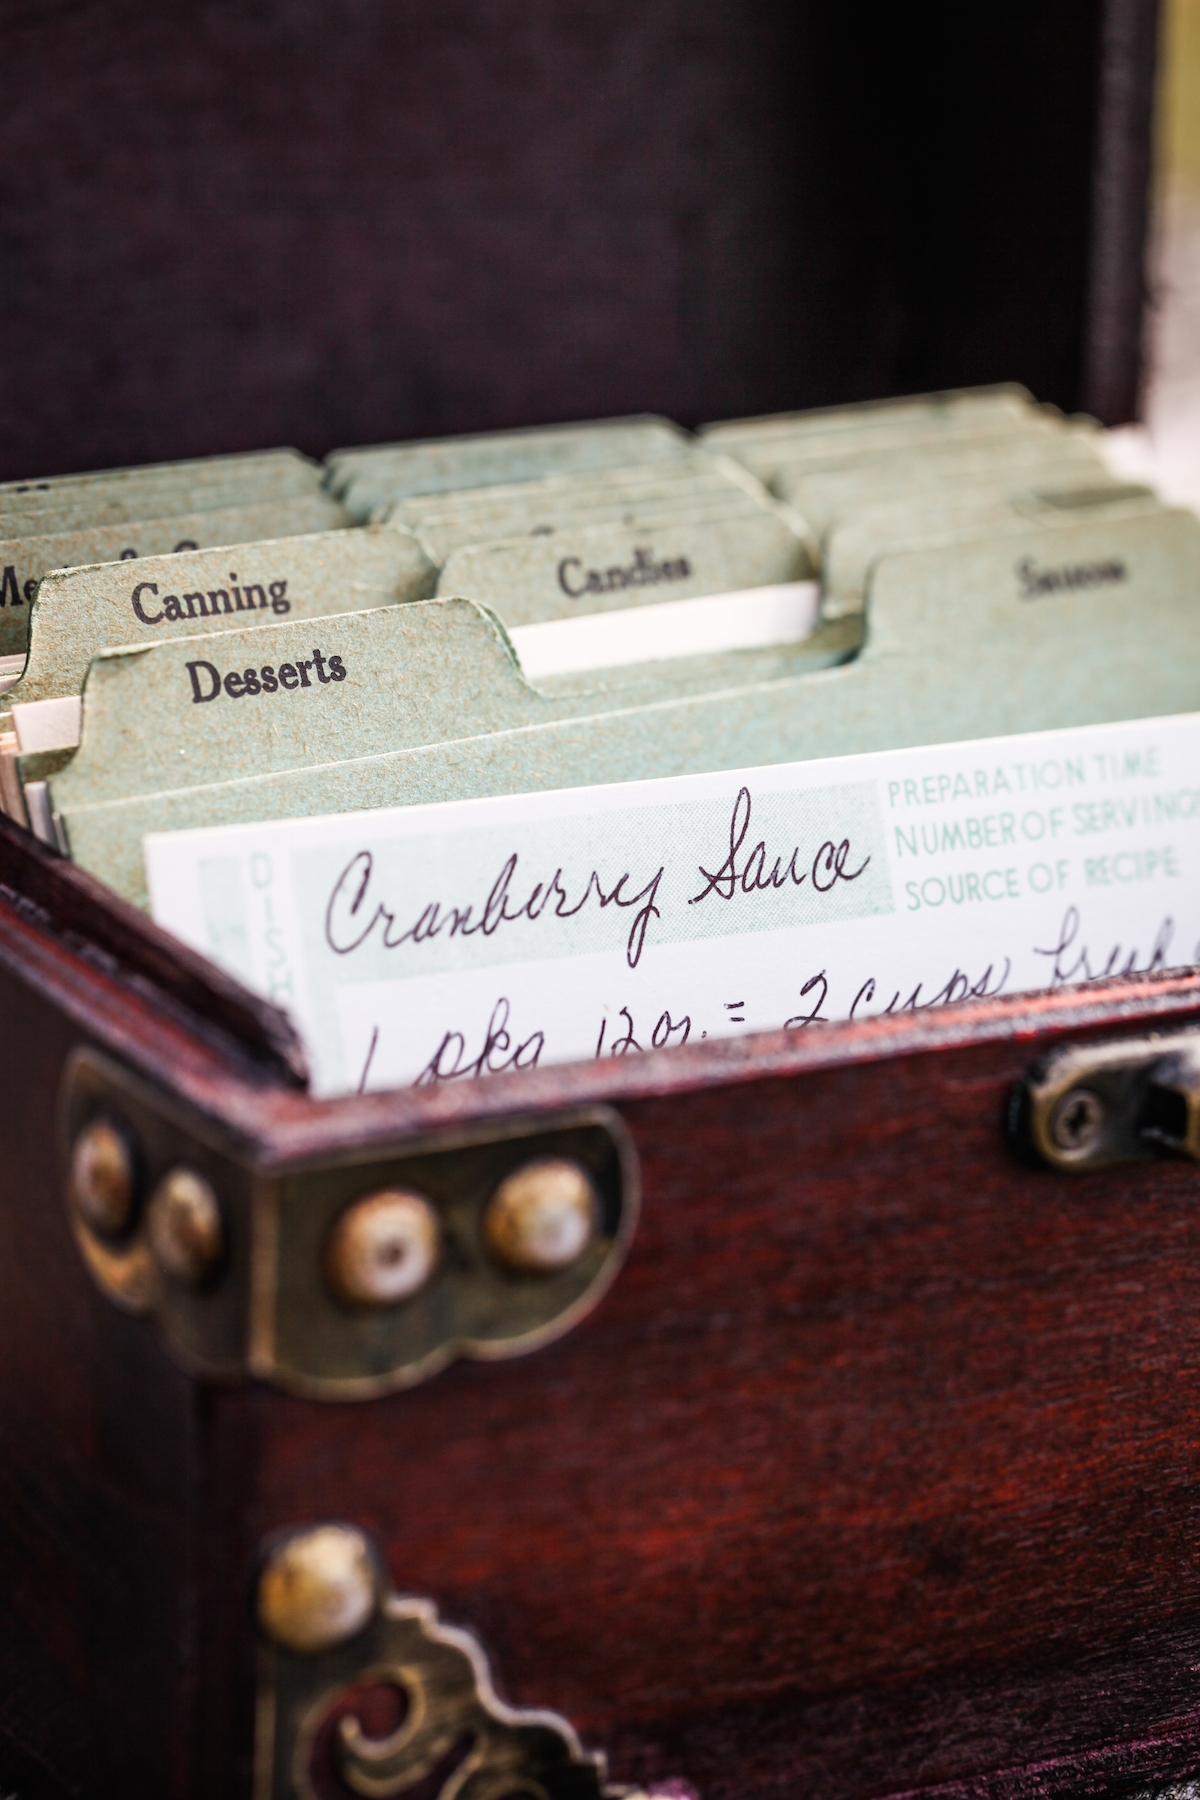 Canning
Candies
Desserts
DISH
Cranberry Sauce
PREPARATION TIME
NUMBER OF SERVING
SOURCE OF RECIPE
1 pkg 12 oz. = 2 cups fresh